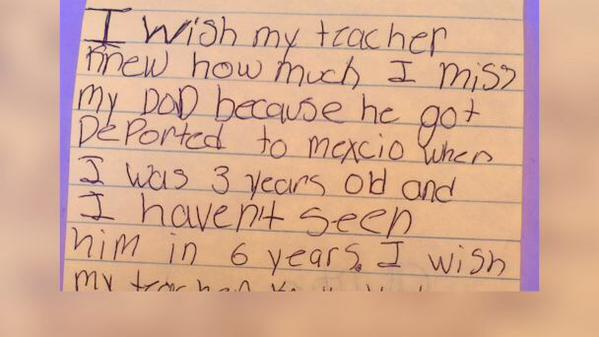 I wish my tracher
knew how much I miss
my DAD because he got
DePorted to mexcio when
I was 3 years old and
I haven't seen
him in 6 years. I wish
my